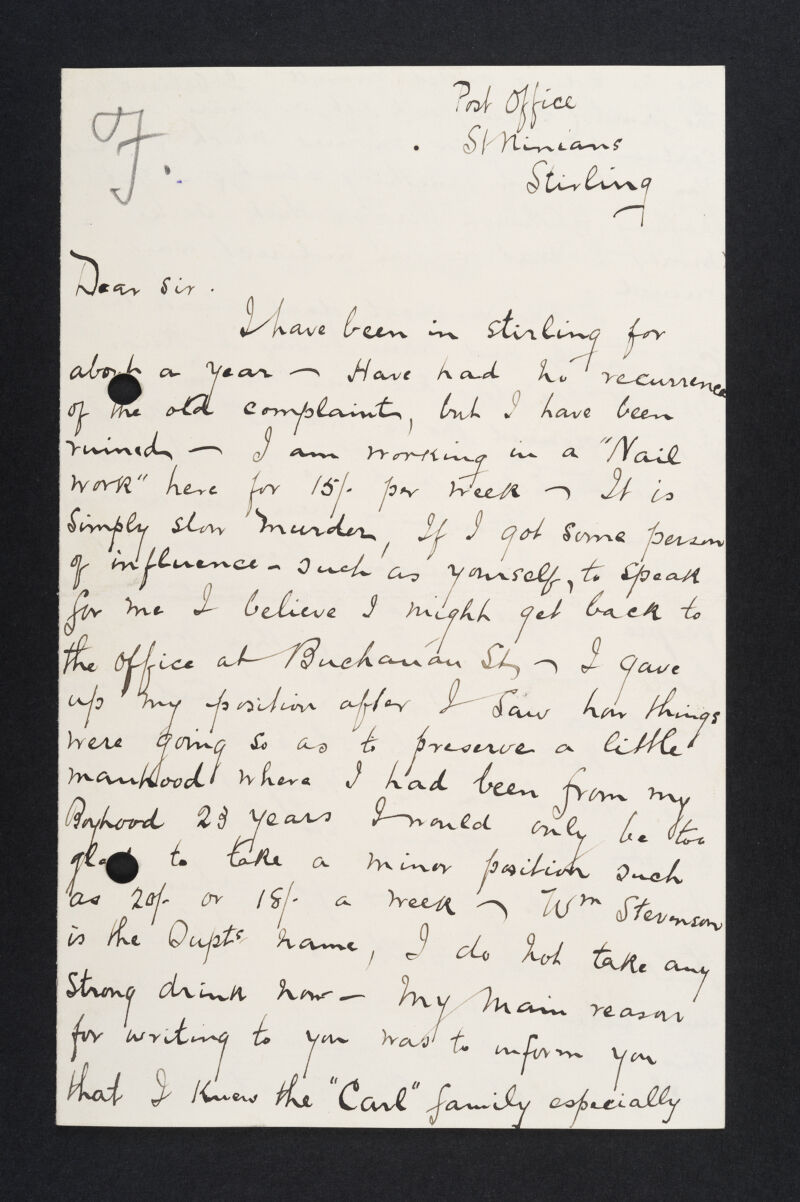 F.
Post Office
St Ninians
Stirling
Dear Sir.
I have been in Stirling for
about a year — Have had no recurrence
of the old complaint, but I have been
ruined — I am working in a "Nail
work" here for 15/- per week — It is
simply slow murder, If I got some person
of influence - such as yourself, to speak
for me I believe I might get back to
the office at Buchanan St, — I gave
up my position after I saw how things
were going so as to preserve a little
manhood where I had been from my
Boyhood 23 years I would only be too
glad to take a minor position such
as 20/- or 18/- a week — Wm Stevenson
is the Supts name, I do not take any
strong drink now — My main reason
for writing to you was to inform you
that I knew the "Carl" family especially